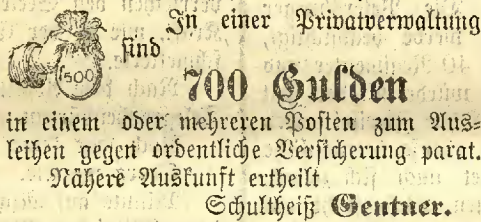 In einer Privatverwaltung
sind
500
700 Gulden
in einem oder mehreren Posten zum Aus-
leihen gegen ordentliche Versicherung parat.
Nähere Auskunft ertheilt
Schultheiß Gentner.